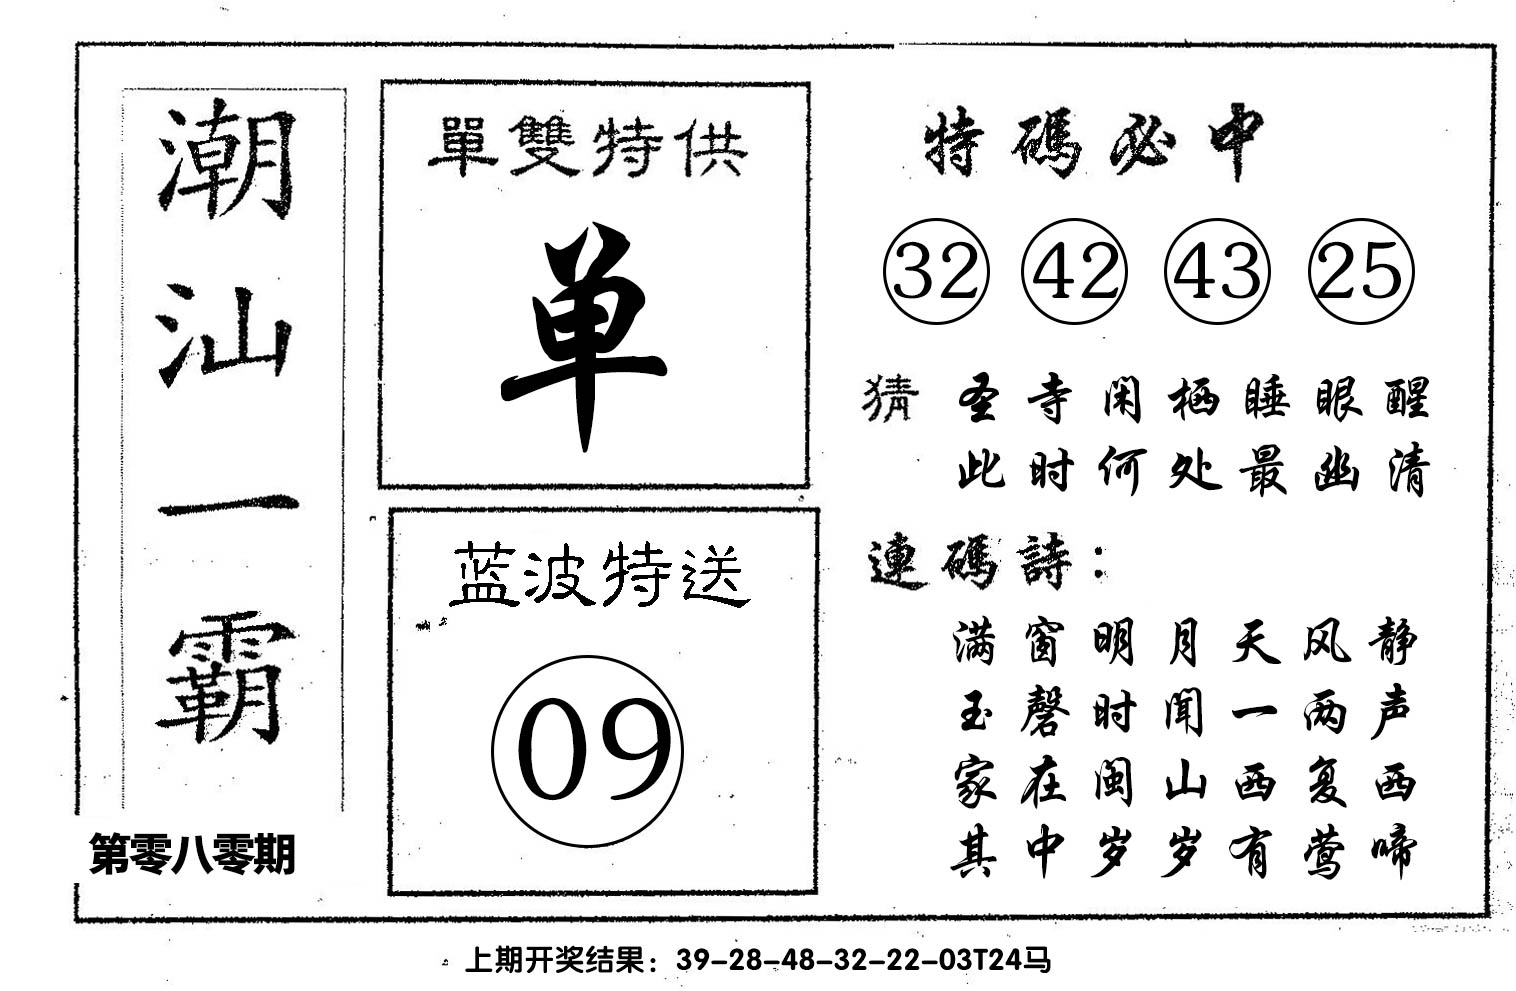 潮汕一霸
第零八零期
單雙特供
单
蓝波特送
09
特碼必中
32 42 43 25
猜 圣寺闲栖睡眼醒
此时何处最幽清
連碼詩：
满窗明月天风静
玉磬时闻一两声
家在闽山西复西
其中岁岁有莺啼
上期开奖结果：39-28-48-32-22-03T24马